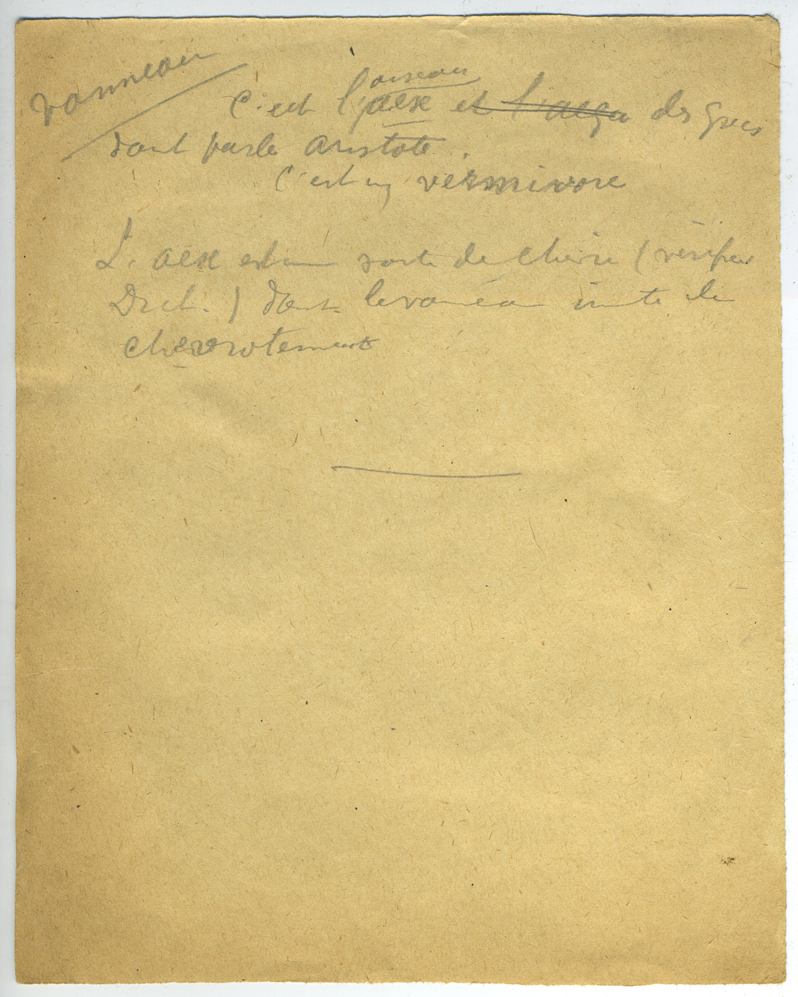 vanneau
C'est l'oiseau aex et l'aega des grecs
dont parle Aristote.
C'est un vermivore
L'aex est une sorte de chèvre (vérifier
Dict.) dont le vanneau imite le
chevrotement